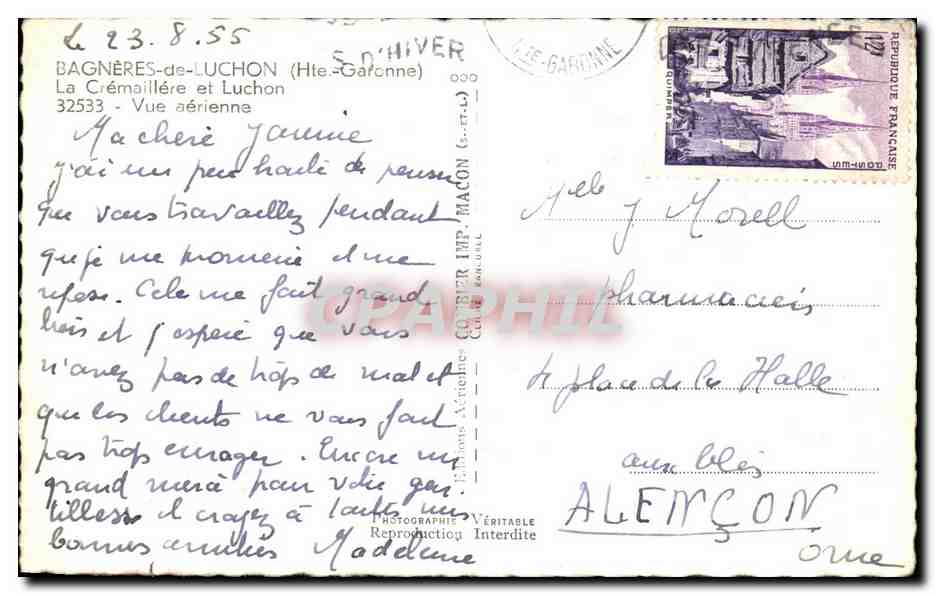 Le 23.8.55
BAGNÈRES-de-LUCHON (Hte.-Garonne)
La Crémaillére et Luchon
32533 - Vue aérienne
Ma chère Janine
j'ai un peu honte de penser
que vous travaillez pendant
que je me promène et me
repose. Cela me fait grand
bien et j'espère que vous
n'avez pas de trop de mal et
que les clients ne vous font
pas trop enrager. Encore un
grand merci pour votre gen-
tillesse et croyez à toutes mes
bonnes amitiés Madeleine
S D'HIVER
HTE-GARONNE
REPUBLIQUE FRANÇAISE
POSTES
QUIMPER
12f
Editions Aériennes COMBIER IMP. MACON (S.-ET-L.)
PHOTOGRAPHIE VÉRITABLE
Reproduction Interdite
CPAPHIL
Melle J Morell
pharmacie
4 place de la Halle
aux blés
ALENÇON
Orne